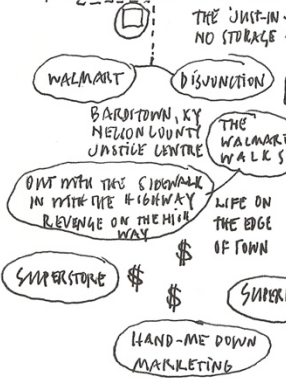 THE JUST-IN-
NO STORAGE -
WALMART
DISJUNCTION
BARDSTOWN, KY
NELSON COUNTY
JUSTICE CENTRE
THE
WALMART
WALKS
OUT WITH THE SIDEWALK
IN WITH THE HIGHWAY
REVENGE ON THE HIGH
WAY
LIFE ON
THE EDGE
OF TOWN
$
SUPERSTORE
$
$
SUPER
HAND-ME DOWN
MARKETING